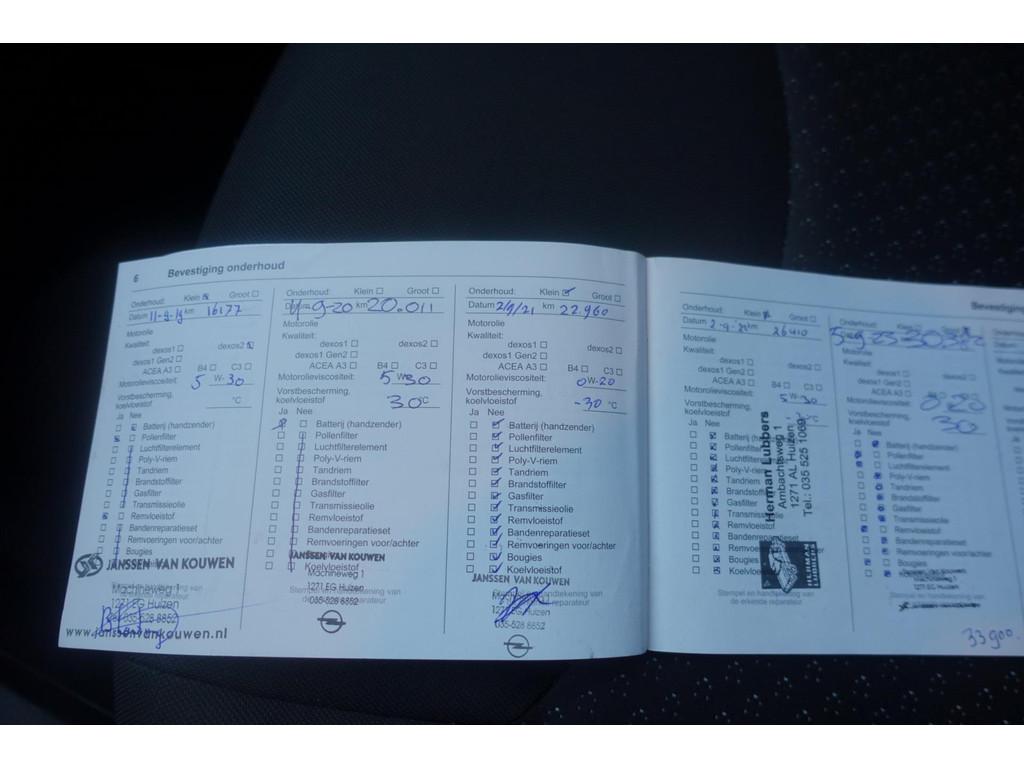 6 Bevestiging onderhoud
Onderhoud: Klein Groot
Datum 11-9-19 km 16177
Motorolie
Kwaliteit:
dexos1 dexos2
dexos1 Gen2
ACEA A3 B4 C3
Motorolieviscositeit: 5 W-30
Vorstbescherming,
koelvloeistof °C
Ja Nee
Batterij (handzender)
Pollenfilter
Luchtfilterelement
Poly-V-riem
Tandriem
Brandstoffilter
Gasfilter
Transmissieolie
Remvloeistof
Bandenreparatieset
Remvoeringen voor/achter
Bougies
JANSSEN VAN KOUWEN
Machineweg 1
1271 EG Huizen
035-528 6652
www.janssenvankouwen.nl
Onderhoud: Klein Groot
9-20 km 20.011
Motorolie
Kwaliteit:
dexos1 dexos2
dexos1 Gen2
ACEA A3 B4 C3
Motorolieviscositeit: 5 W 30
Vorstbescherming,
koelvloeistof 30 °C
Ja Nee
Batterij (handzender)
Pollenfilter
Luchtfilterelement
Poly-V-riem
Tandriem
Brandstoffilter
Gasfilter
Transmissieolie
Remvloeistof
Bandenreparatieset
Remvoeringen voor/achter
JANSSEN VAN KOUWEN
Koelvloeistof
Machineweg 1
1271 EG Huizen
035-528 6652
Onderhoud: Klein Groot
Datum 2/9/21 km 22.960
Motorolie
Kwaliteit:
dexos1 dexos2
dexos1 Gen2
ACEA A3 B4 C3
Motorolieviscositeit: 0W-20
Vorstbescherming,
koelvloeistof -30 °C
Ja Nee
Batterij (handzender)
Pollenfilter
Luchtfilterelement
Poly-V-riem
Tandriem
Brandstoffilter
Gasfilter
Transmissieolie
Remvloeistof
Bandenreparatieset
Remvoeringen voor/achter
Bougies
Koelvloeistof
JANSSEN VAN KOUWEN
035-528 6652
Onderhoud: Klein Groot
Datum km 26410
Motorolie
Kwaliteit:
dexos1 dexos2
dexos1 Gen2
ACEA A3 B4 C3
Motorolieviscositeit: 5 W-30
Vorstbescherming,
koelvloeistof
Ja Nee
Herman Lubbers
Ambachtsweg 1
1271 AL Huizen
Tel.: 035 525 1069
HERMAN
LUBBERS
Stempel en handtekening van
de erkende reparateur
Bevestiging
Motorolie
Kwaliteit:
dexos1
dexos1 Gen2
ACEA A3
Motorolieviscositeit:
Vorstbescherming,
koelvloeistof 30
Ja Nee
Batterij (handzender)
Pollenfilter
Luchtfilterelement
Poly-V-riem
Tandriem
Brandstoffilter
Gasfilter
Transmissieolie
Remvloeistof
Bandenreparatieset
Remvoeringen voor/achter
Bougies
Stempel en handtekening van
de erkende reparateur
33900.